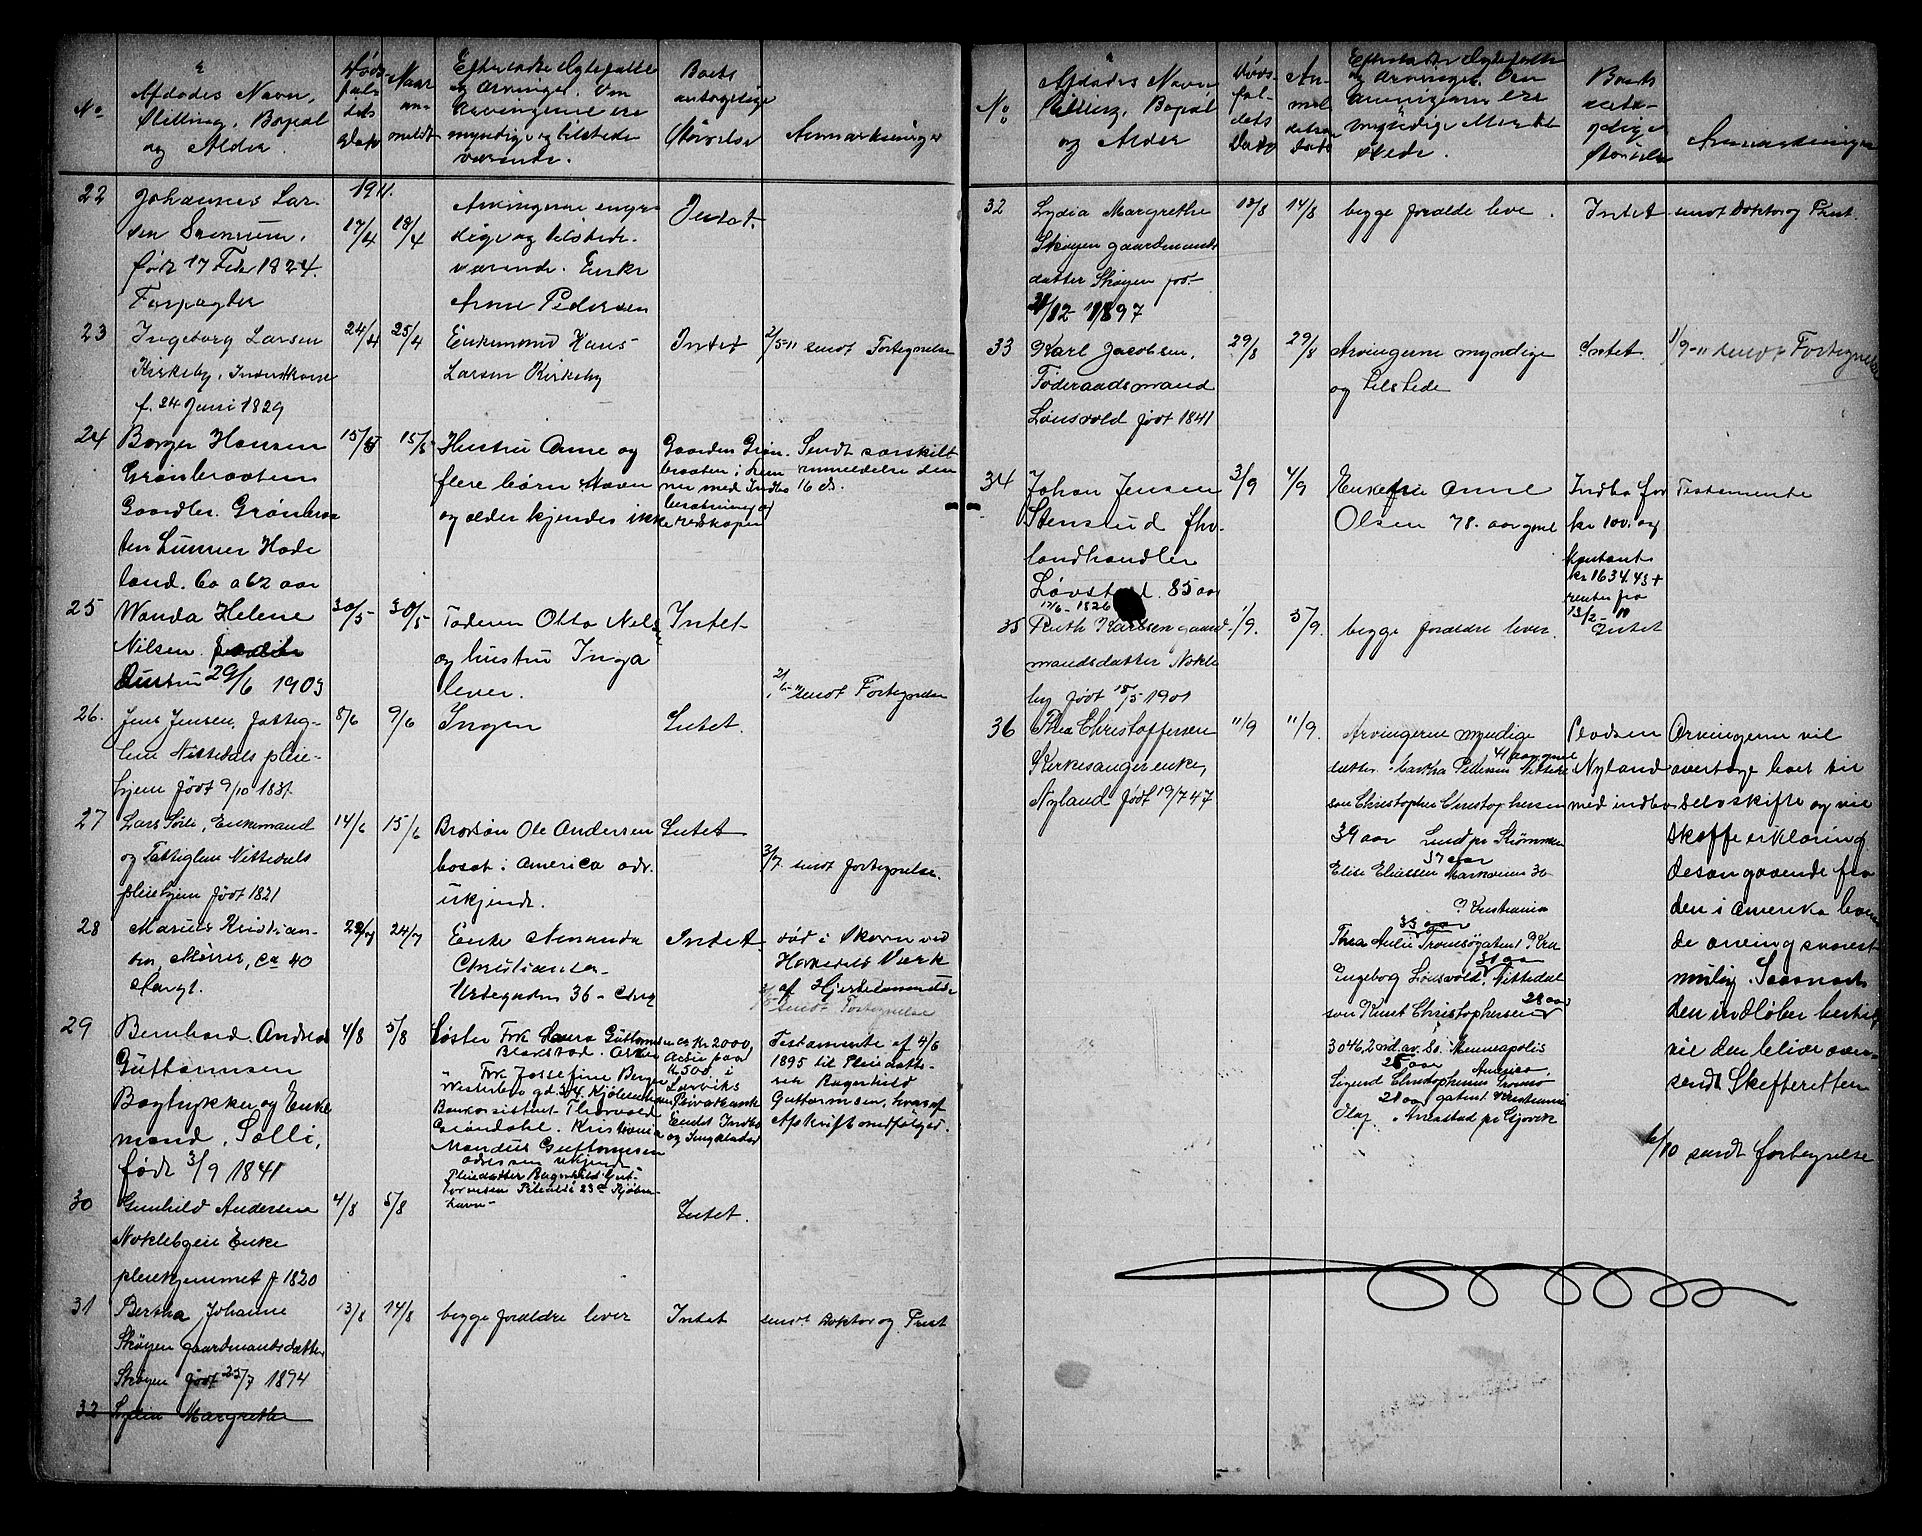 No
Afdødes Navn,
Stilling, Bopæl
og Alder.
Døds-
fal-
dets
Dato
Naar
an-
meldt
Efterladte Ægtefælle
og Arvinger. Om
Arvingerne ere
myndige og tilstede
værende.
Boets
antagelige
Størrelse
Anmærkninger
22
Johannes Lar-
sen
født 17 Febr 1824.
Forpagter
1911.
17/4
18/4
Arvingerne myn-
dige og tilstede-
værende. Enke
Anne Pedersen
Intet.
23
Ingeborg Larsen
Kirkeby, Inderstkone
f. 24 Juni 1829
24/4
25/4
Enkemand Hans
Larsen Kirkeby
Intet
2/5-11 sendt Fortegnelse
24
Borger Hansen
Grønbraaten
Gaardbr. Grønbraa
ten Lunner Hade
land. Ca a 62 aar
15/5
15/5
Hustru Anne og
flere børn Navn
og alder kjendes ikke
Gaarden Grøn-
braaten i Lun
ner med Indbo
besætning og
redskaper
Sendt særskilt
anmeldelse den
16 ds.
25
Wanda Helene
Nilsen
Austin 29/6 1903
30/5
30/5
Faderen Otto Nils
og hustru Inga
lever.
Intet
2/6-11 sendt Fortegnelse
26.
Jens Jensen, fattig-
lem Nittedals pleie-
hjem født 9/10 1831.
8/6
9/6
Ingen
Intet.
27
Lars Sørli, Enkemand
og Fattiglem Nittedals
pleiehjem født 1821
14/6
15/6
Brorsøn Ole Andersen
bosat i America adr.
ukjendt.
Intet
3/7 sendt fortegnelse.
28
Marius Kristian-
sen, Mørrer, ca 40
Aargl.
22/7
24/7
Enke Amanda
Christiansen
Urtegaden 36 - Chra
Intet
død i Skoven ved
Hakedals Værk
af Hjertelammelse
sendt Fortegnelse
29
Bernhard Andreas
Guttormsen
Bogtrykker og Enke
mand, Solli,
født 3/9 1841
4/8
5/8
Søster Frk Laura Guttormsen
Blakstad. Asker
" Frk Josefine Berger
Westerbro gd. 34. Kjøbenhavn
Bankassistent Thorvald
Grøndahl. Kristiania
Mandius Guttormsen
adressen ukjendt
Pleiedatter Ragnhild Gut-
tormsen 23 Kjøben-
havn -
ca Kr 2000,
Actie paa
Kr 500. i
Larviks
Privatbank
Endel Indbo
og Gangklæder
Testamente af 4/6
1895 til Pleiedatte-
ren Ragnhild
Guttormsen, hvoraf
Afskrift medfølger.
30
Gunhild Andersen
Noklebyeie Enke
pleiehjemmet f 1820
4/8
5/8
Intet.
31
Bertha Johanne
Skøyen gaardmandsdatter
Skøyen født 25/7 1894
13/8
14/8
begge forældre lever
Intet
sendt Doktor og Prest
32 Lydia Margrethe
No
Afdødes Navn
Stilling, Bopæl
og Alder
Døds-
fal-
dets
Dato
An-
mel
delsens
Dato
Efterladte Ægtefælle
og Arvinger. Om
Arvingerne ere
myndige
stede.
Boets
anta-
gelige
Størrelse
Anmærkninger
32
Lydia Margrethe
Skøyen gaardmands
datter Skøyen fød-
31/12 1897
12/8
14/8
begge forældre leve.
Intet
sendt Doktor og Prest.
33
Karl Jacobsen,
Føderaadsmand
Lønsvold født 1841
29/8
29/8
Arvingerne myndige
og tilstede
Intet
1/9-11 sendt Fortegnelse
34
Johan Jensen
Stensrud fhv.
landhandler
Løvstad. 85 aar
17/6-1826
3/9
4/9
Enkefru Anne
Olsen 78. aar gml
Indbo for
kr 100. og
Kontant
kr 1634.43 +
renter fra
13/2-11
Testamente
35
Ruth Karlsen gaard
mandsdatter Nokle
by født 18/5 1901
1/9.
5/9.
begge forældre lever.
Intet
36
Thea Christoffersen
Kirkesangerenke,
Nyland født 19/7 47
11/9
11/9.
Arvingerne myndige
41 aar gmel
datter Martha Pettersen Nittedal
søn Christopher Christophersen
39 aar Lund pr Strømmen
37 aar
Elise Eliassen Markveien 30
? Kristiania
35 aar
Thea Aulie Tromsøgaten 1 ? Kra
31 aar
Ingeborg Lønsvold, Nittedal
28 aar
søn Knut Christophersen
3046.2nd.av.So. Menneapolis
25 aar America.
Sigurd Christophersen Tromsø
21 aar gaten 1 Kristiania
Olaf " Aarestad pr Gjøvik
Pladsen
Nyland
med indbo
Arvingerne vil
overtage boet til
selvskifte og vil
skaffe erklæring
desangaaende fra
den i Amerika boen
de arving snarest
mulig. Saasnart
den indløber bestil
vil den blive over-
sendt Skifteretten
6/10 sendt fortegnelse